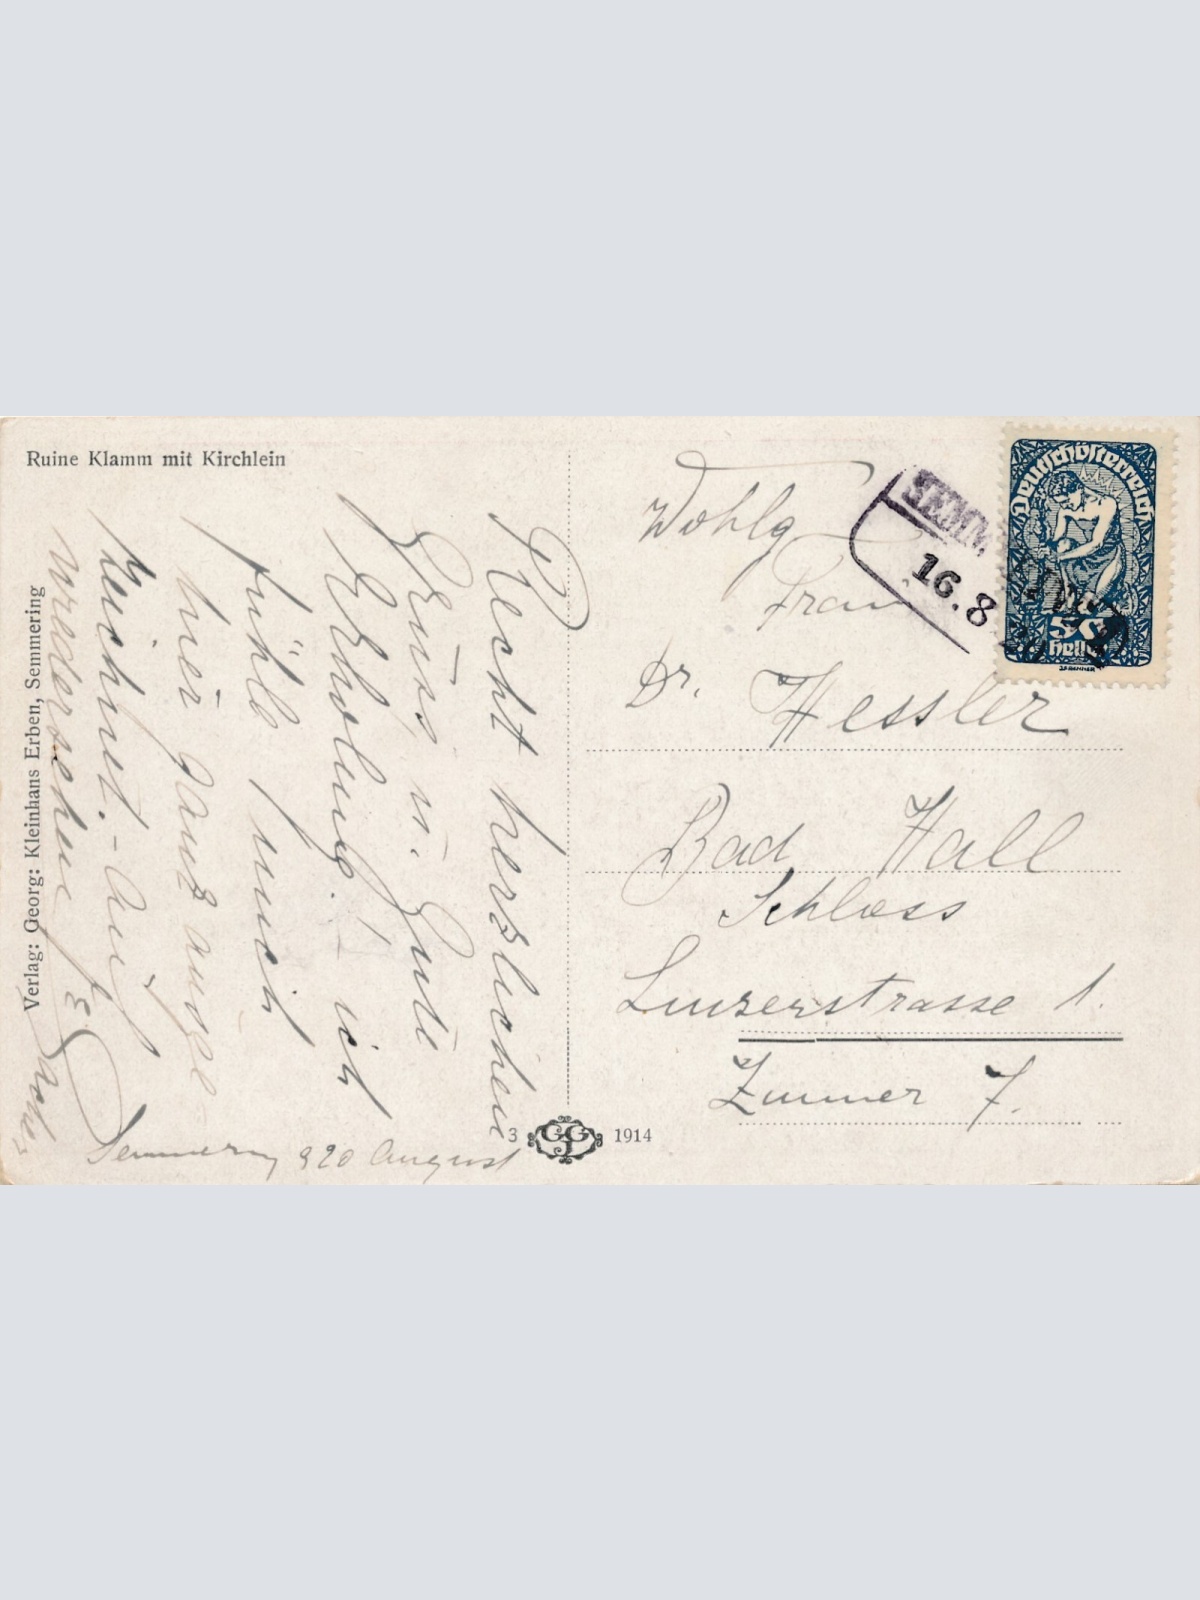 Ruine Klamm mit Kirchlein
Verlag: Georg: Kleinhans Erben, Semmering
Recht herzlichen
Gruss, u. Gute
Erholung. - ich
fühle mich
hier ganz ausge
zeichnet. - Auf
wiedersehen
Semmering 920 August
3
1914
Wohlg
Frau
Dr. Hessler
Bad Hall
Schloss
Linzerstrasse 1.
Zimmer 7.
SEMM
16.8
Deutschösterreich
50
Heller